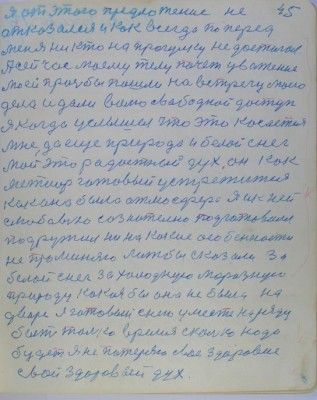 45
я от этого предложение не
отказовался и как всегда по перед
меня никто на прогулку не достовлял
А сей час моему телу почет уважение
моей прозьбы пошли на встречу моего
дела и дали вволю свободной доступ
я когда услышал что это касается
мне, да еще природа и белой снег
мой это радостной дух, он как
метиор готовый устремится
какана была атмосфера я ик ней
с любовью сознательно подготовился
подружил ни на какие особенности
не променяю люжбы сказали за
белой снег за холодную морозную
природу какая бы она не была на
дворе я готовый с нею уместе наряду
быть только время сколько надо
будет я не потеряю свое здоровие
свой здоровый дух.